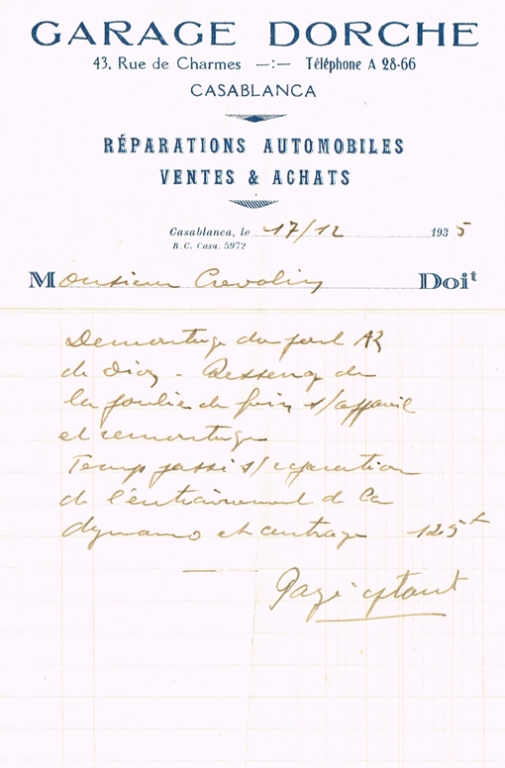 GARAGE DORCHE
43, Rue de Charmes —:— Téléphone A 28-66
CASABLANCA
RÉPARATIONS AUTOMOBILES
VENTES & ACHATS
Casablanca, le 17/12 1935
R. C. Casa. 5972
Monsieur Doit
Demontage du pont AR
de
la poulie de frein s/appareil
et remontage
Temps passé s/reparation
de l'entrainement de la
dynamo et centrage 125
Payé cptant